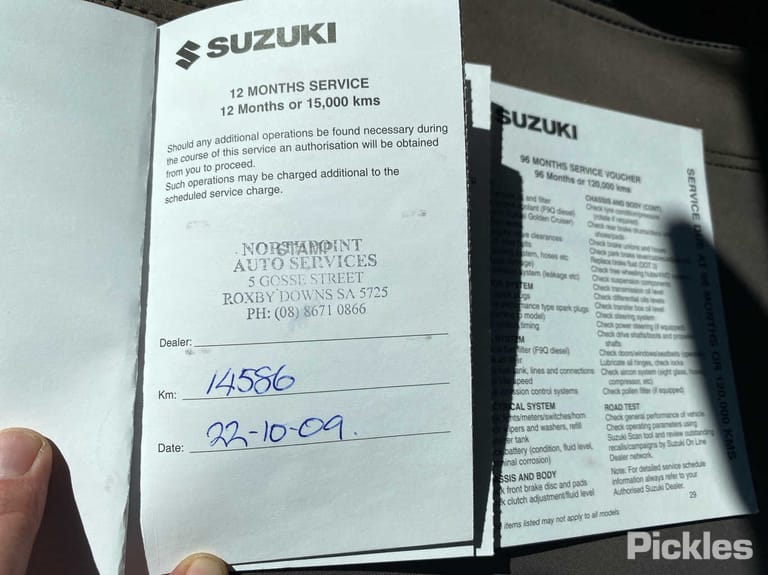 SUZUKI
12 MONTHS SERVICE
12 Months or 15,000 kms
Should any additional operations be found necessary during
the course of this service an authorisation will be obtained
from you to proceed.
Such operations may be charged additional to the
scheduled service charge.
STAMP
NORTHPOINT
AUTO SERVICES
5 GOSSE STREET
ROXBY DOWNS SA 5725
PH: (08) 8671 0866
Dealer:
Km: 14586
Date: 22-10-09.
SUZUKI
96 MONTHS SERVICE VOUCHER
96 Months or 120,000 kms
and filter
(F9Q diesel)
Golden Cruiser)
clearances
hoses etc
system (leakage etc)
SYSTEM
plugs
performance type spark plugs
to model)
timing
SYSTEM
filter (F9Q diesel)
filter
tank, lines and connections
speed
emission control systems
ELECTRICAL SYSTEM
lights/meters/switches/horn
wipers and washers, refill
tank
battery (condition, fluid level,
terminal corrosion)
CHASSIS AND BODY
front brake disc and pads
clutch adjustment/fluid level
CHASSIS AND BODY (CONT)
Check tyre condition/pressure
(rotate if required)
Check rear brake drums/discs
shoes/pads
Check brake unions and hoses
Check park brake lever/cables
Replace brake fluid (DOT 3)
Check free wheeling hubs
Check suspension components
Check transmission oil level
Check differential oils levels
Check transfer box oil level
Check steering system
Check power steering (if equipped)
Check drive shafts/boots and propeller
shafts
Check doors/windows/seatbelts
Lubricate all hinges, check locks
Check aircon system (sight glass, hoses,
compressor, etc)
Check pollen filter (if equipped)
ROAD TEST
Check general performance of vehicle
Check operating parameters using
Suzuki Scan tool and review outstanding
recalls/campaigns by Suzuki On Line
Dealer network.
Note: For detailed service schedule
information always refer to your
Authorised Suzuki Dealer.
29
items listed may not apply to all models
SERVICE DUE AT 96 MONTHS OR 120,000 KMS
Pickles